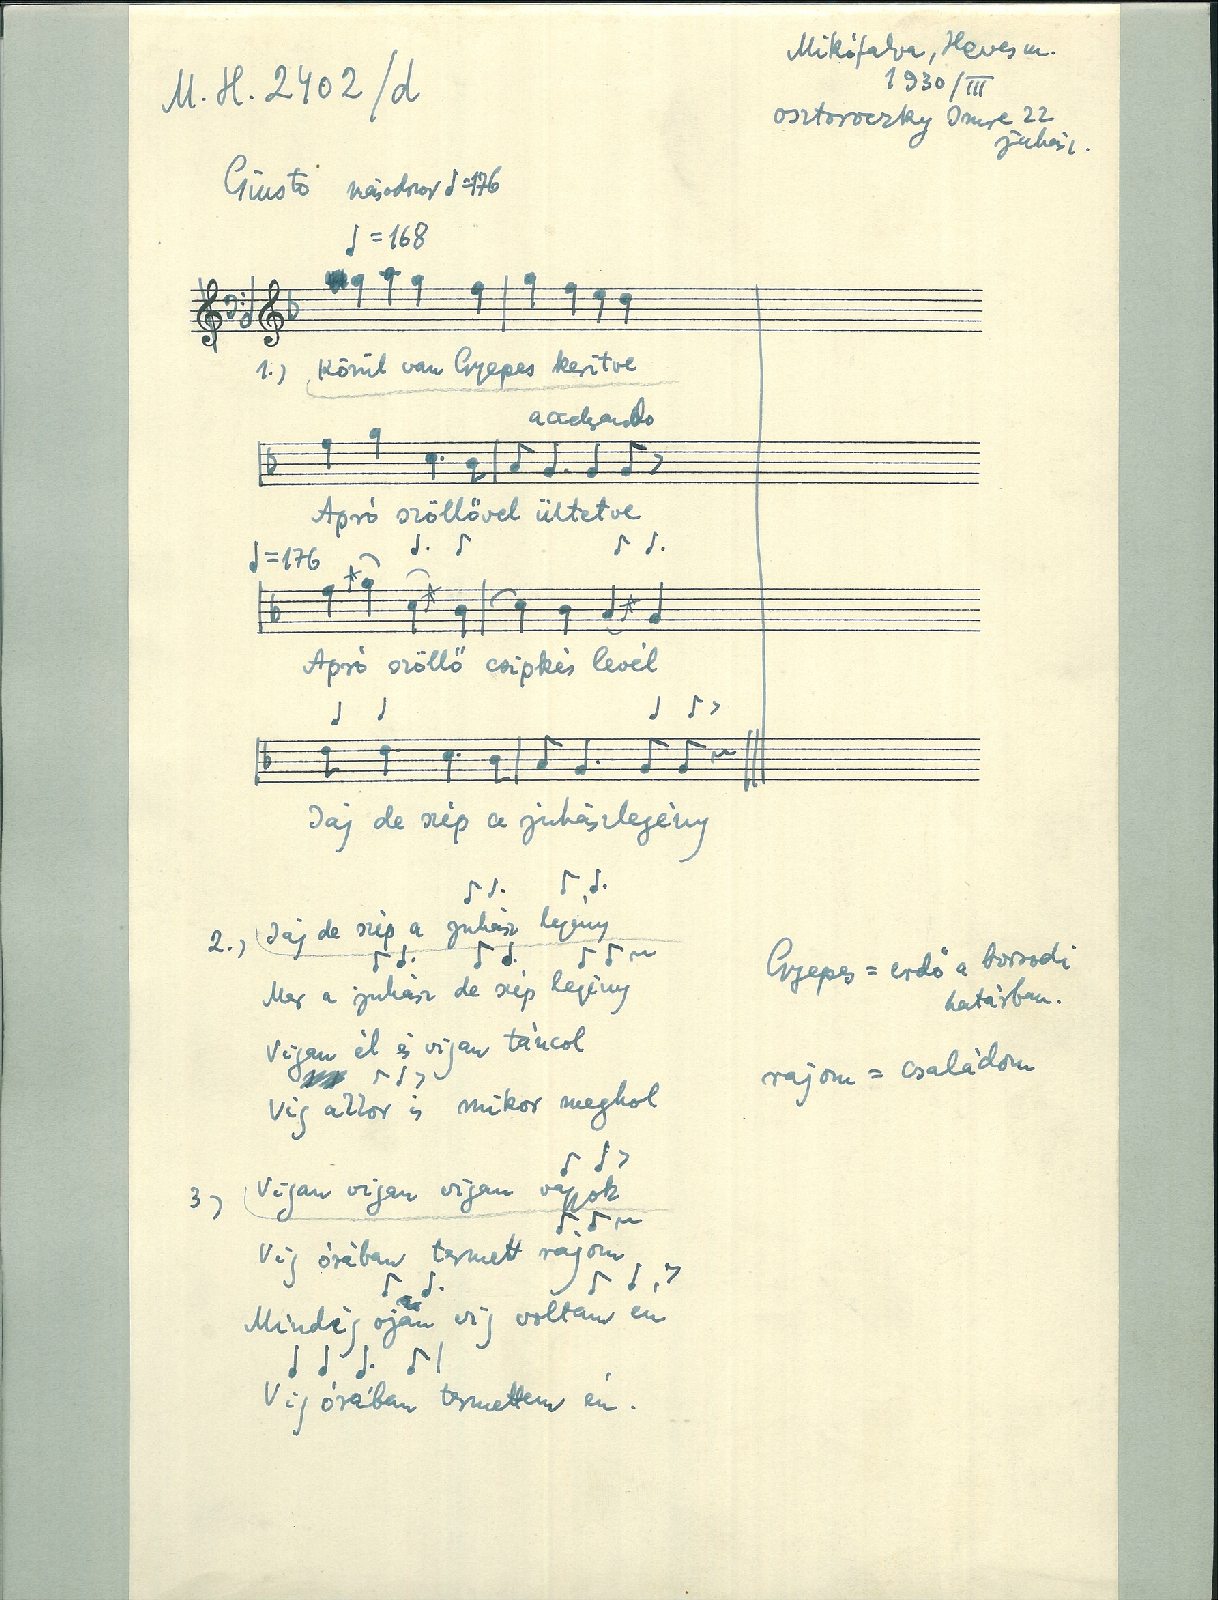 M. H. 2402/d
Mikófalva, Heves m.
1930/III
Osztoroczky Imre 22
juhász.
Giusto másodszor ♩=176
♩=168
1.) Körül van Gyepes kerítve
accelerando
Apró szöllővel ültetve
♩=176
Apró szöllő csipkés levél
Jáj de szép a juhászlegény
2.) Jáj de szép a juhász legény
Mer a juhász de szép legény
Vígan él és vígan táncol
Víg akkor is mikor meghol
3) Vígan vígan vígan vagyok
Víg órában termett rajom
Mindég víg voltam én
Víg órában termettem én.
Gyepes = erdő a borsodi
határban.
rajom = családom